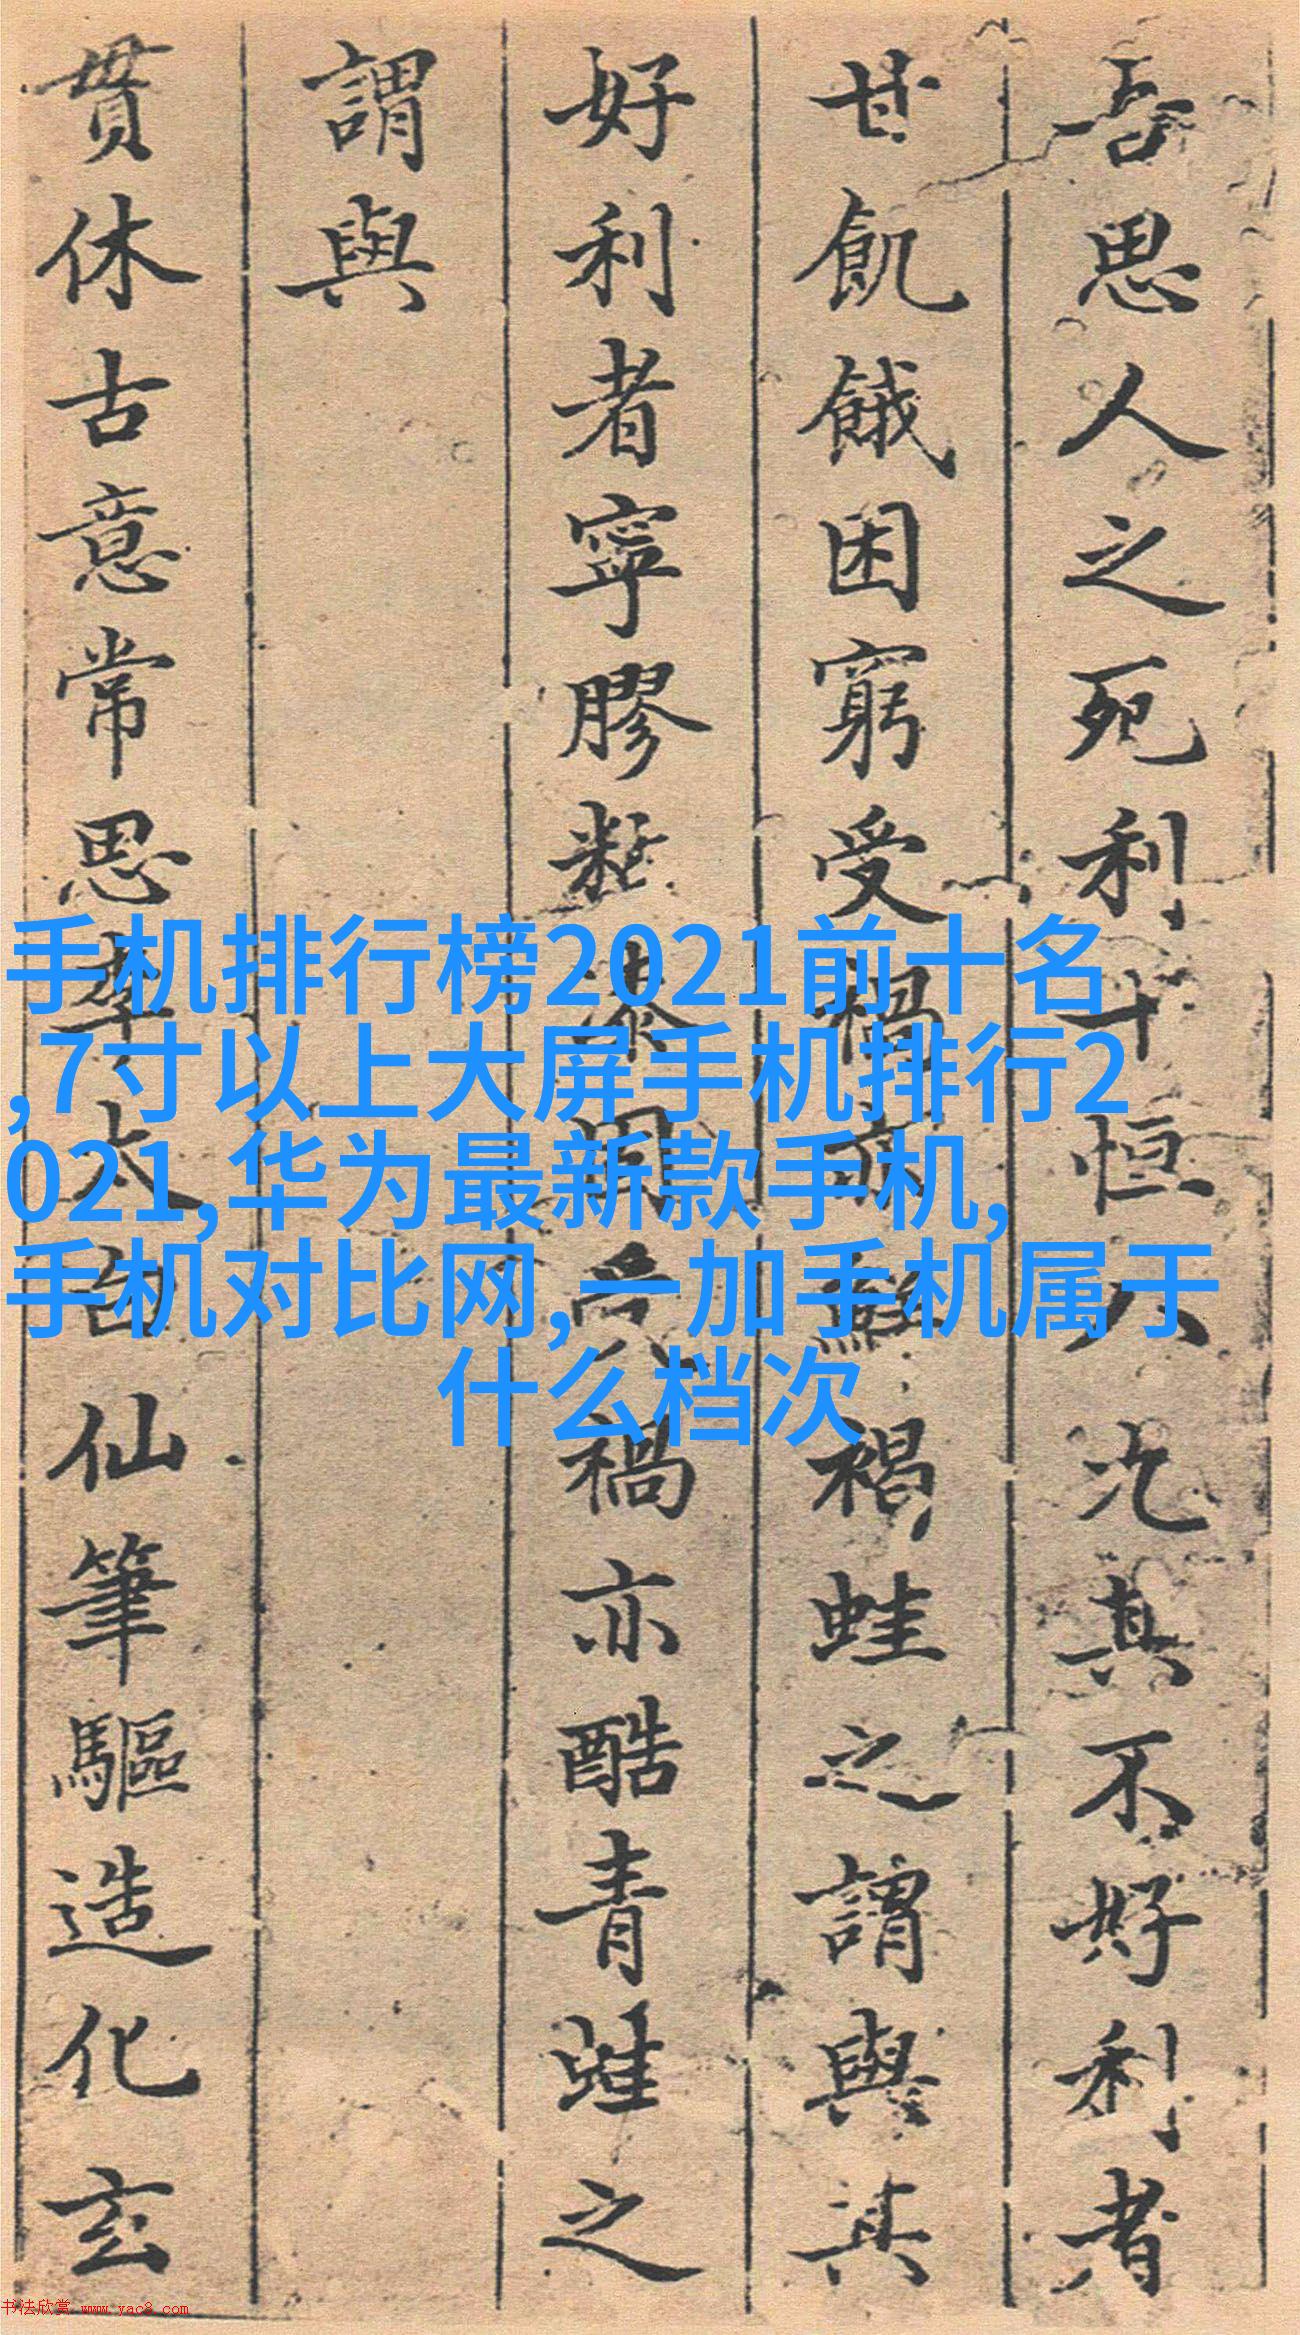 吾思人之死利十恒八九其不好利者
甘飢餓困窮受禍亦鮮禍蛙之謂與其
好利者寧膠黏漆固其禍亦酷青蛙之
謂與
贯休古意常思李太白仙筆驅造化玄
手机排行榜2021前十名
,7寸以上大屏手机排行2
021,华为最新款手机,
手机对比网,一加手机属于
什么档次
书法欣赏 www.yac8.com